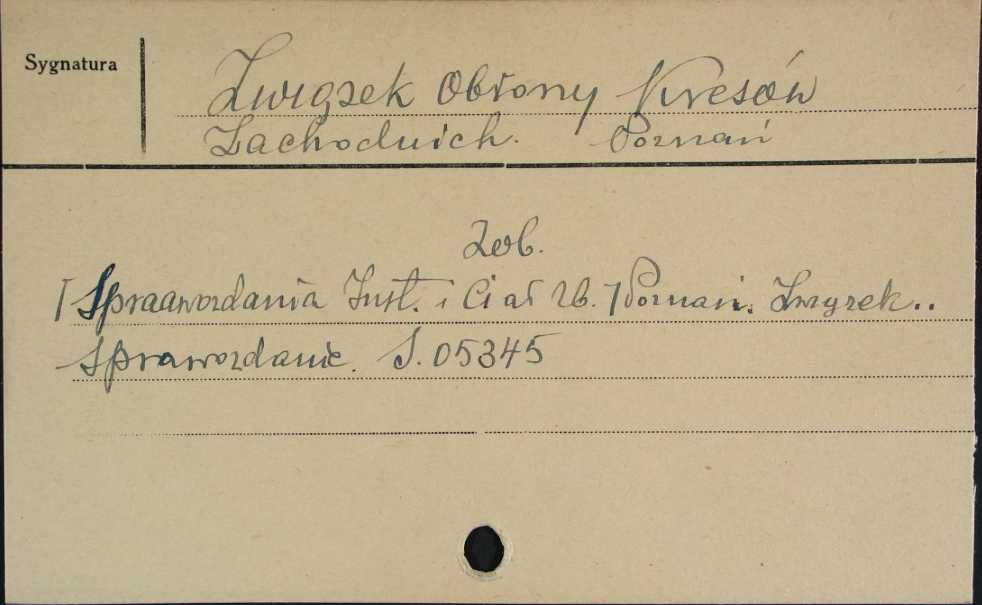 Sygnatura
Związek Obrony Kresów
Zachodnich. Poznań
Zob.
[Spraawozdania Inst. i Ciał Zb.] Poznań. Związek..
Sprawozdanie. S. 05345